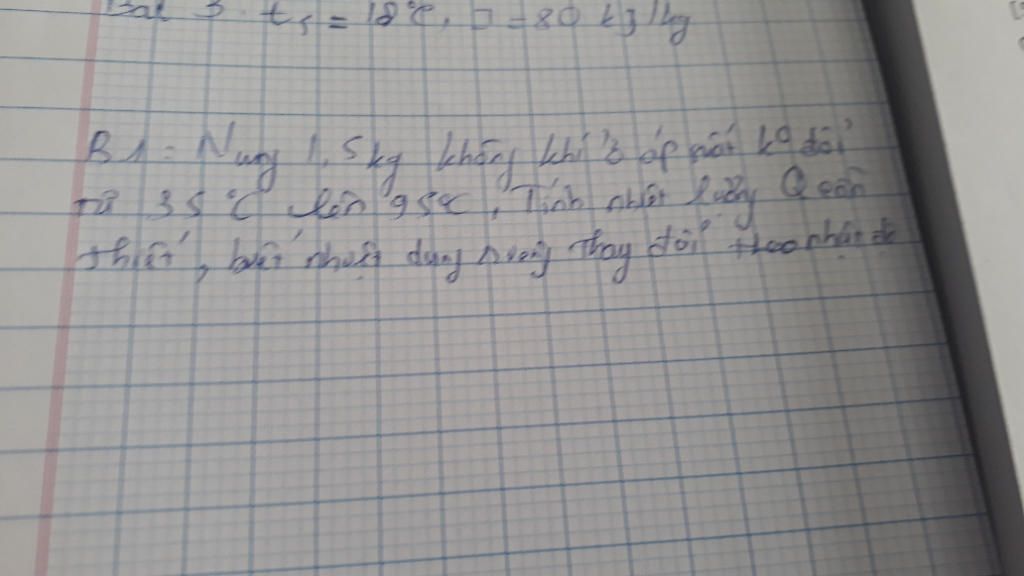 Bài 3. ts = 18°C, = 80 kJ/kg
B1: Nung 1,5kg không khí ở áp suất ko đổi
từ 35°C lên 95°C, Tính nhiệt lượng Q cần
thiết, biết nhiệt dung riêng thay đổi theo nhiệt độ